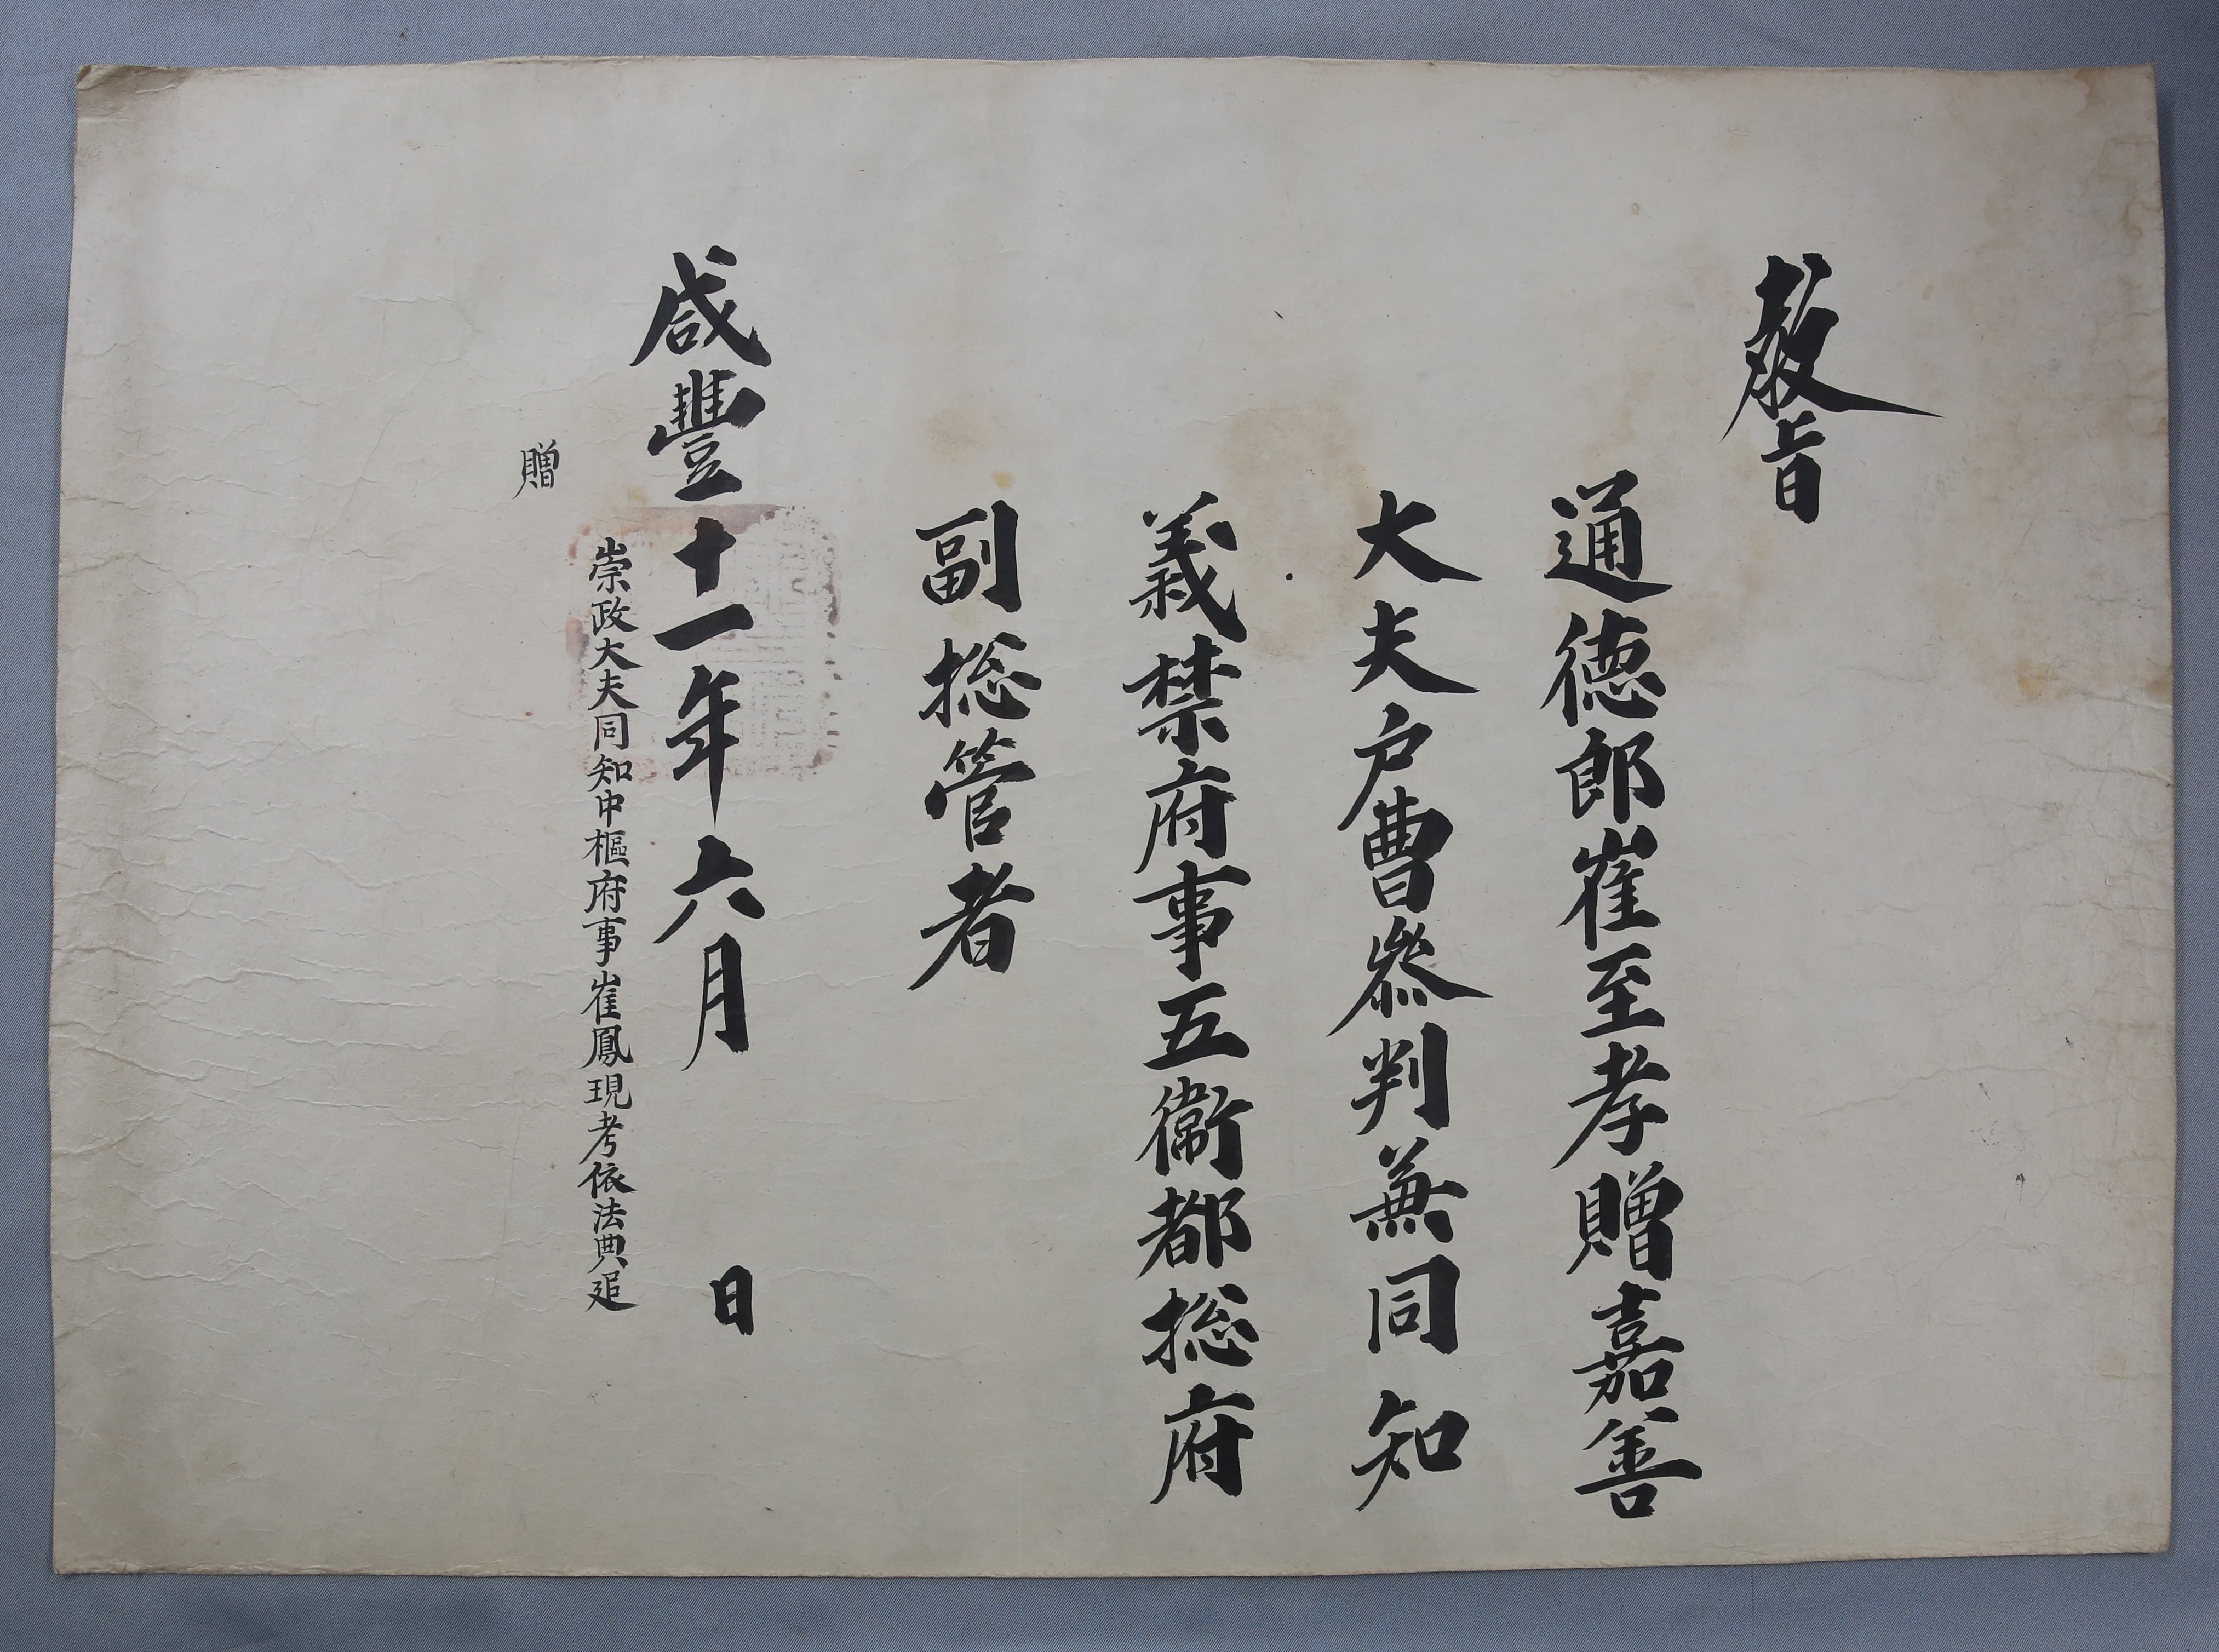 教旨
通德郎崔至孝贈嘉善
大夫戶曹叅判兼同知
義禁府事五衛都摠府
副摠管者
咸豐十一年六月　日
崇政大夫同知中樞府事崔鳳現考依法典追
贈